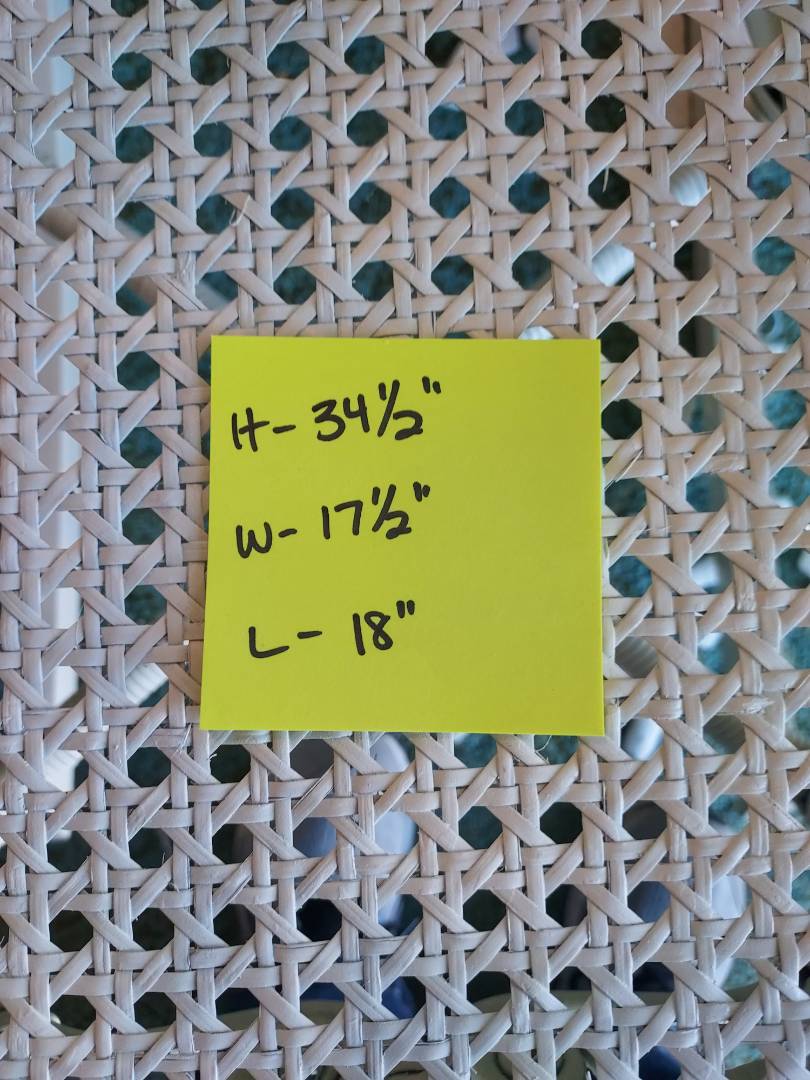 H- 34 1/2"
W- 17 1/2"
L- 18"